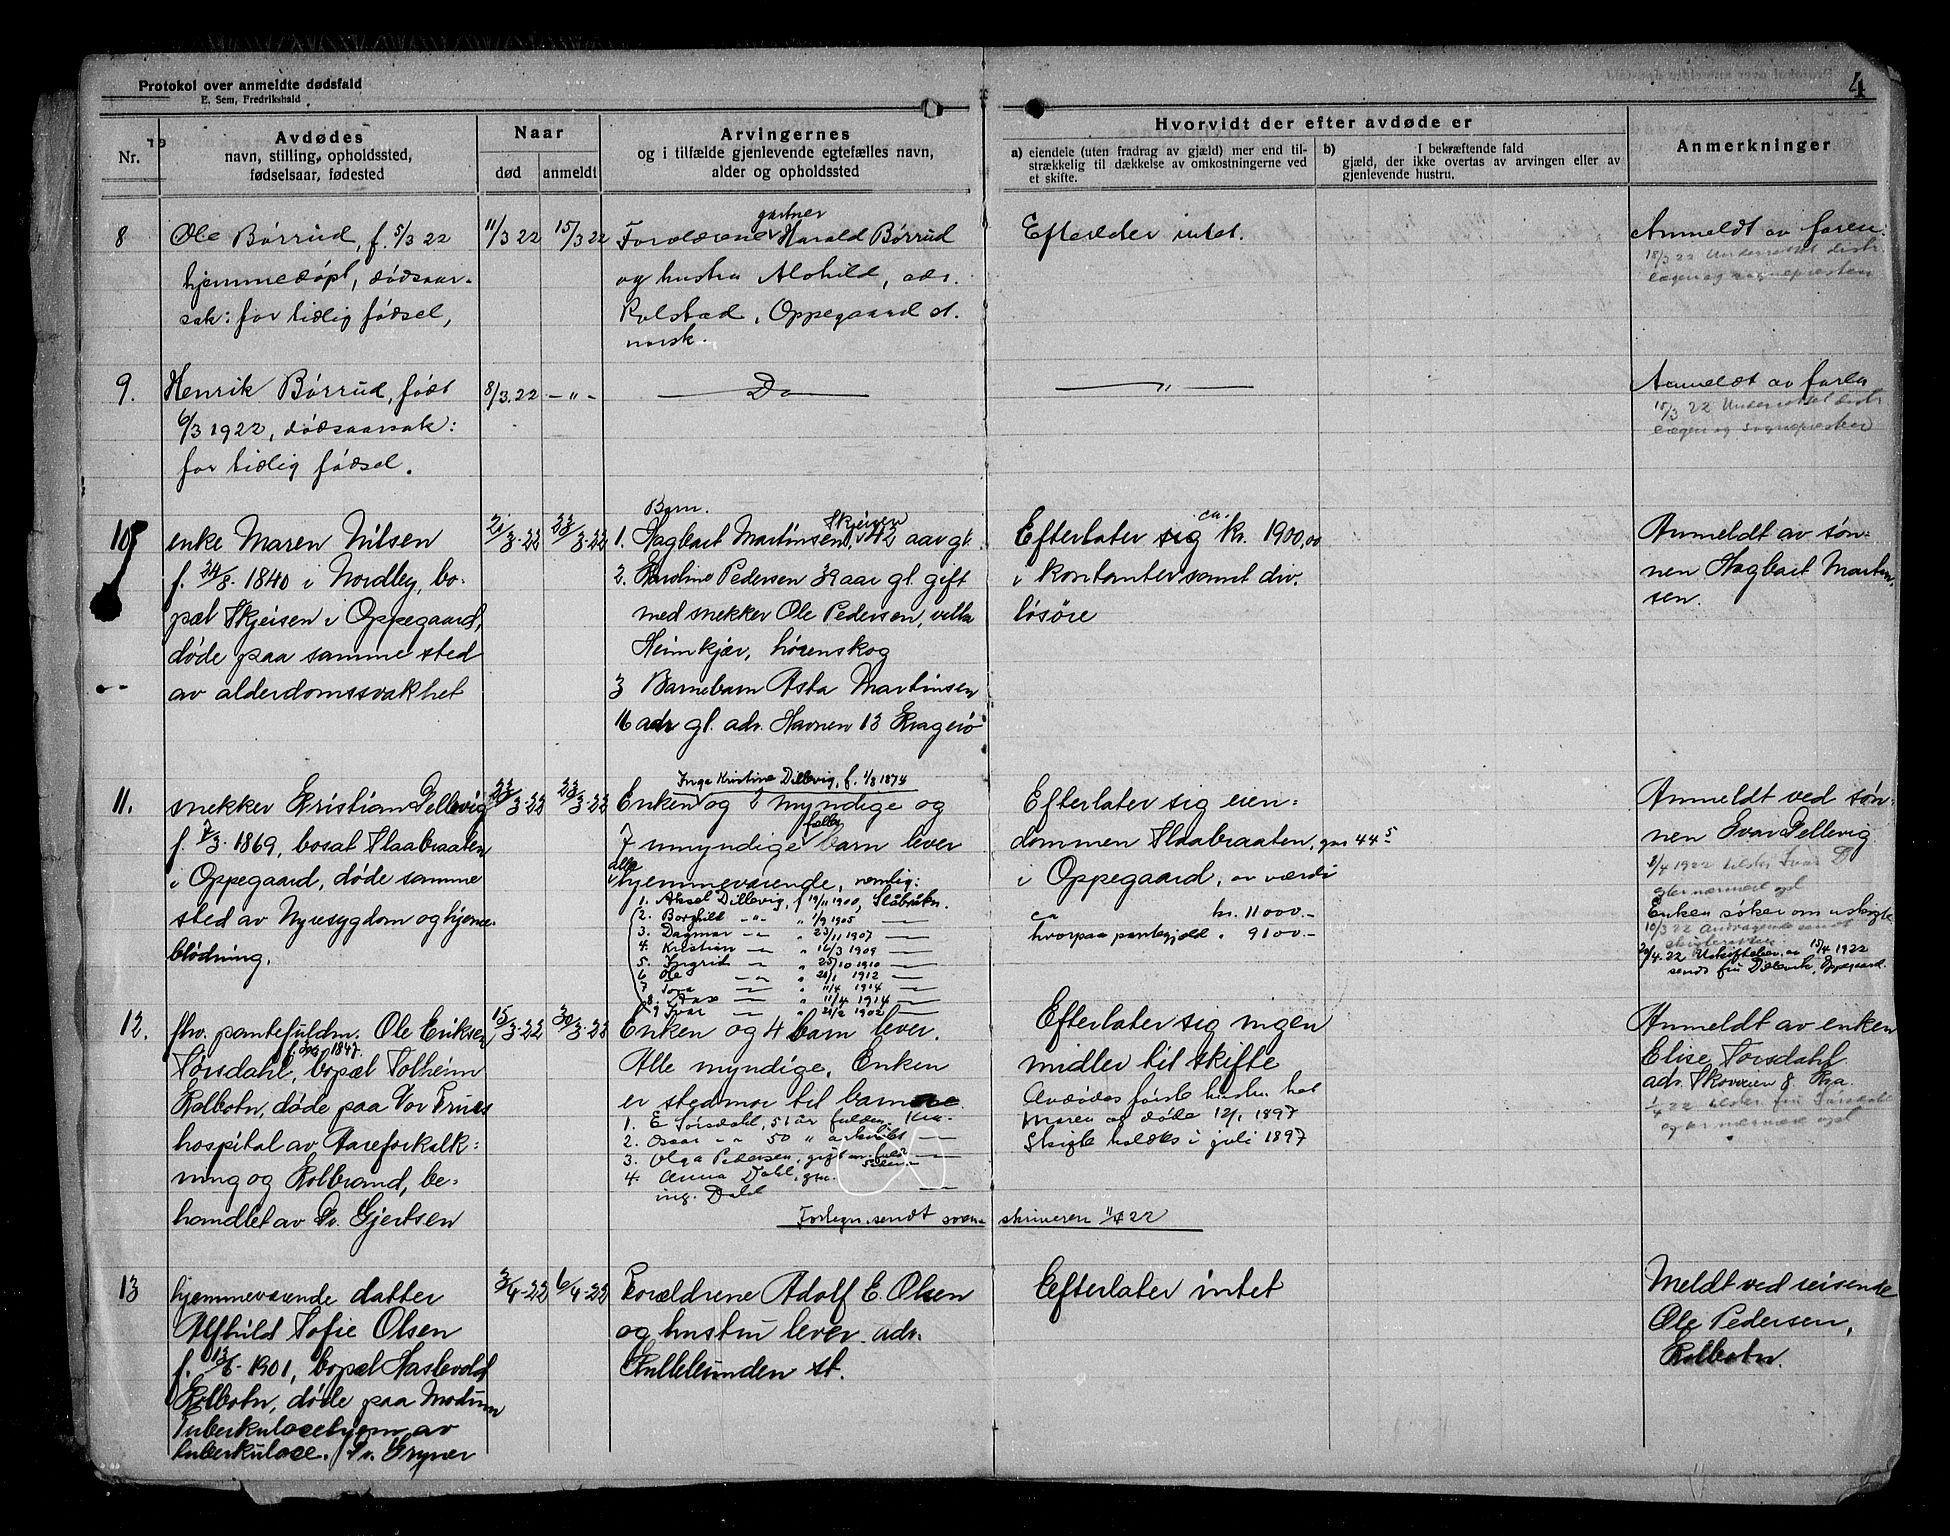 Protokol over anmeldte dødsfald
E. Sem, Fredrikshald
4
Nr.
Avdødes
navn, stilling, opholdssted,
fødselsaar, fødested
Naar
død
anmeldt
Arvingernes
og i tilfælde gjenlevende egtefælles navn,
alder og opholdssted
Hvorvidt der efter avdøde er
a) eiendele (uten fradrag av gjæld) mer end til-
strækkelig til dækkelse av omkostningerne ved
et skifte.
b) I bekræftende fald
gjæld, der ikke overtas av arvingen eller av
gjenlevende hustru.
Anmerkninger
8
Ole Børrud, f. 5/3 22
hjemmedøpt, dødsaar-
sak: for tidlig fødsel,
11/3 22
15/3 22
gartner
Forældrene Harald Børrud
og hustru Alohild, adr.
Rolstad, Oppegaard st.
norsk.
Efterlder intet.
Anmeldt av faren.
15/3 22 Underrettet distr.
lægen og sognepresten
9.
Henrik Børrud, født
6/3 1922, dødsaarsak:
for tidlig fødsel.
8/3. 22
— „ —
— Do —
— „ —
Anmeldt av faren
15/3 22 Underrettet distr.
lægen og sognepresten
10
enke Maren Nilsen
f. 24/8- 1840 i Nordby, bo-
pæl Skjeisen i Oppegaard,
døde paa samme sted
av alderdomssvakhet
21/3-22
23/3-22
Barn.
Skjeisen
1. Hagbart Martinsen, 42 aar gl.
2. Karoline Pedersen 39 aar gl. gift
med snekker Ole Pedersen, villa
Heimkjær, hørenskog
3 Barnebarn Asta Martinsen
16 aar gl. adr. Havnen 13 Kragerø
Efterlater sig ca. kr. 1900,00
i kontanter samt div.
løsøre
Anmeldt av søn-
nen Hagbart Martin-
sen.
11.
snekker Kristian Dellevig
f. 7/3- 1869, bosat Slaabraaten
i Oppegaard, døde samme
sted av Nyresygdom og hjerne-
blødning.
22/3-22
23/3-22
Inga Kristine Dillevig, f. 1/8 1874
Enken og 2 myndige og
7 umyndige fælles barn lever
alle
hjemmeværende, nemlig:
1. Aksel Dillevig, f 19/11 1900, Slåbråtn.
2. Borghild —„— „ 1/9 1905 —
3. Dagmar —„— „ 23/11 1907 —
4. Kristian —„— „ 16/3 1909 —
5. Ingrid —„— „ 25/10 1910 —
6 Ole —„— „ 21/1 1912 —
7 Tora — „ 11/4 1914 —
8. — „ 11/4 1914 —
9 Ivar — „ 21/2 1902 —
Efterlater sig eien-
dommen Slaabraaten, gnr 44⁵
i Oppegaard, av værdi
ca kr. 11000.-
hvorpaa pantegjæld „ 9100.-
Anmeldt ved søn-
nen Ivar Dellevig
1/4 1922 tilskr. Ivar D
Enken søker om uskifte
10/3 22 Andragende sendt
skifteretten.
20/4.22 Uskiftebev. av 15/4 1922
sendt fru Dillevik, Oppegaard.
12.
fhv. pantefuldm. Ole Eriksen
Torsdahl, f. 1847. bopæl Solheim
Kolbotn, døde paa Vor Frues
hospital av Aareforkalk-
ning og Kolbrand, be-
handlet av Dr. Gjertsen
15/3-22
30/3-22
Enken og 4 barn lever.
Alle myndige. Enken
er stedmor til barnene.
1. E Torsdahl, 51 år fuldm. Kra-
2. Oscar —„— 50 „ arkivist —
3. Olga Pedersen, gift m.
4. Anna Dahl, gm.
ing. Dahl —
Forlegn. sendt sorenskriveren 11/4 22
Efterlater sig ingen
midler til skifte
Avdødes første hustru het
Maren og døde 12/1 1897
Skifte holdtes i juli 1897
Anmeldt av enken
Elise Torsdahl
adr. Skoveien 8 Kra.
1/4 22 tilskr. fru Torsdahl
13
hjemmeværende datter
Alfhild Sofie Olsen
f. 13/6- 1901, bopæl Hastevold
Kolbotn, døde paa Modum
Tuberkulosehjem av
tuberkulose. Dr. Gryner
3/4-22
6/4-22
Forældrene Adolf E. Olsen
og hustru lever. adr.
Gullleunden st.
Efterlater intet
Meldt ved reisende
Ole Pedersen,
Kolbotn.